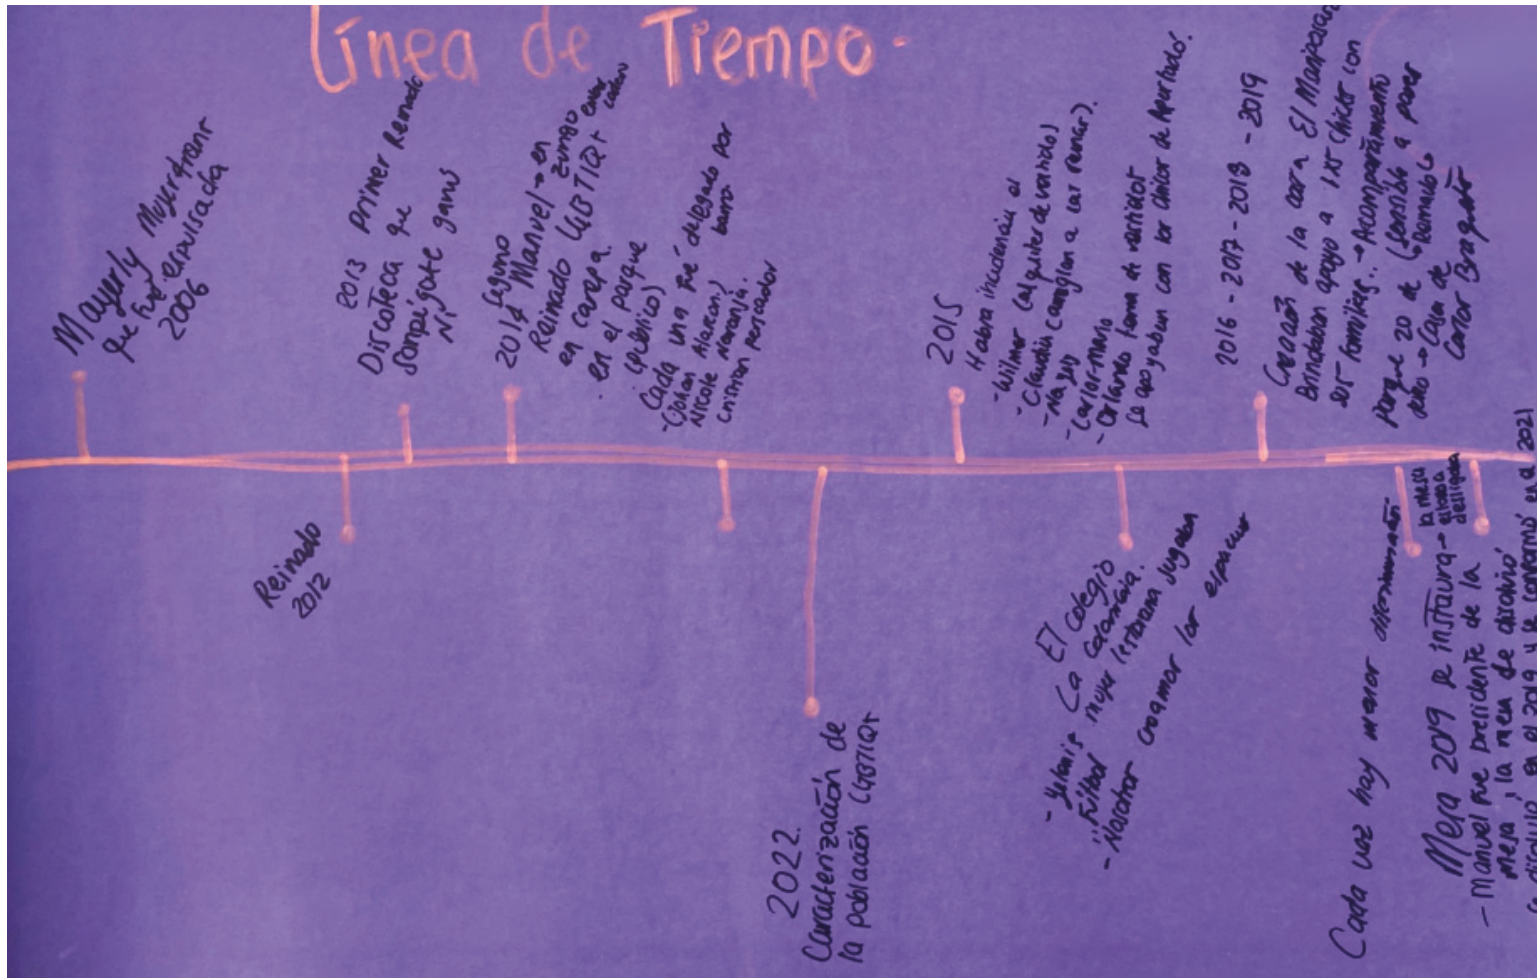 Línea de Tiempo.
Mayerly Mujer trans
que fue expulsada
2006
Reinado
2012
2013 Primer Reinado
Discoteca que
Ni gano
2014 Manuel → en
Reinado LGBTIQ+
en carepa
en el parque
(público)
Cada una fue delegado por
barrio
(Johan Alarcon)
Nicole Naranja.
cristian pescador
2022.
Caracterización de
la población LGBTIQ+
2015
Habra incidencia el
- Wilmer (alquiler de vestidos)
- Claudia (arreglan a las reinas).
- Carlos mario
- Orlando
se apoyaban con los chicos de Apartadó.
- El colegio
La Colombia.
Futbol mujer lesbiana jugaban
- Nosotros creamos los espacios
2016 - 2017 - 2018 - 2019
Creación de la casa El Mariposario
Brindaban apoyo a los chicos con
sus familias. → Acompañamiento
Parque 20 de
→ Casa de
Carlos
Cada vez hay menor discriminación
Mesa 2019 se instaura → la mesa
estaba
desligada
- Manuel fue presidente de la
mesa, la mesa se disolvió
en el 2019 y se conformó en el 2021